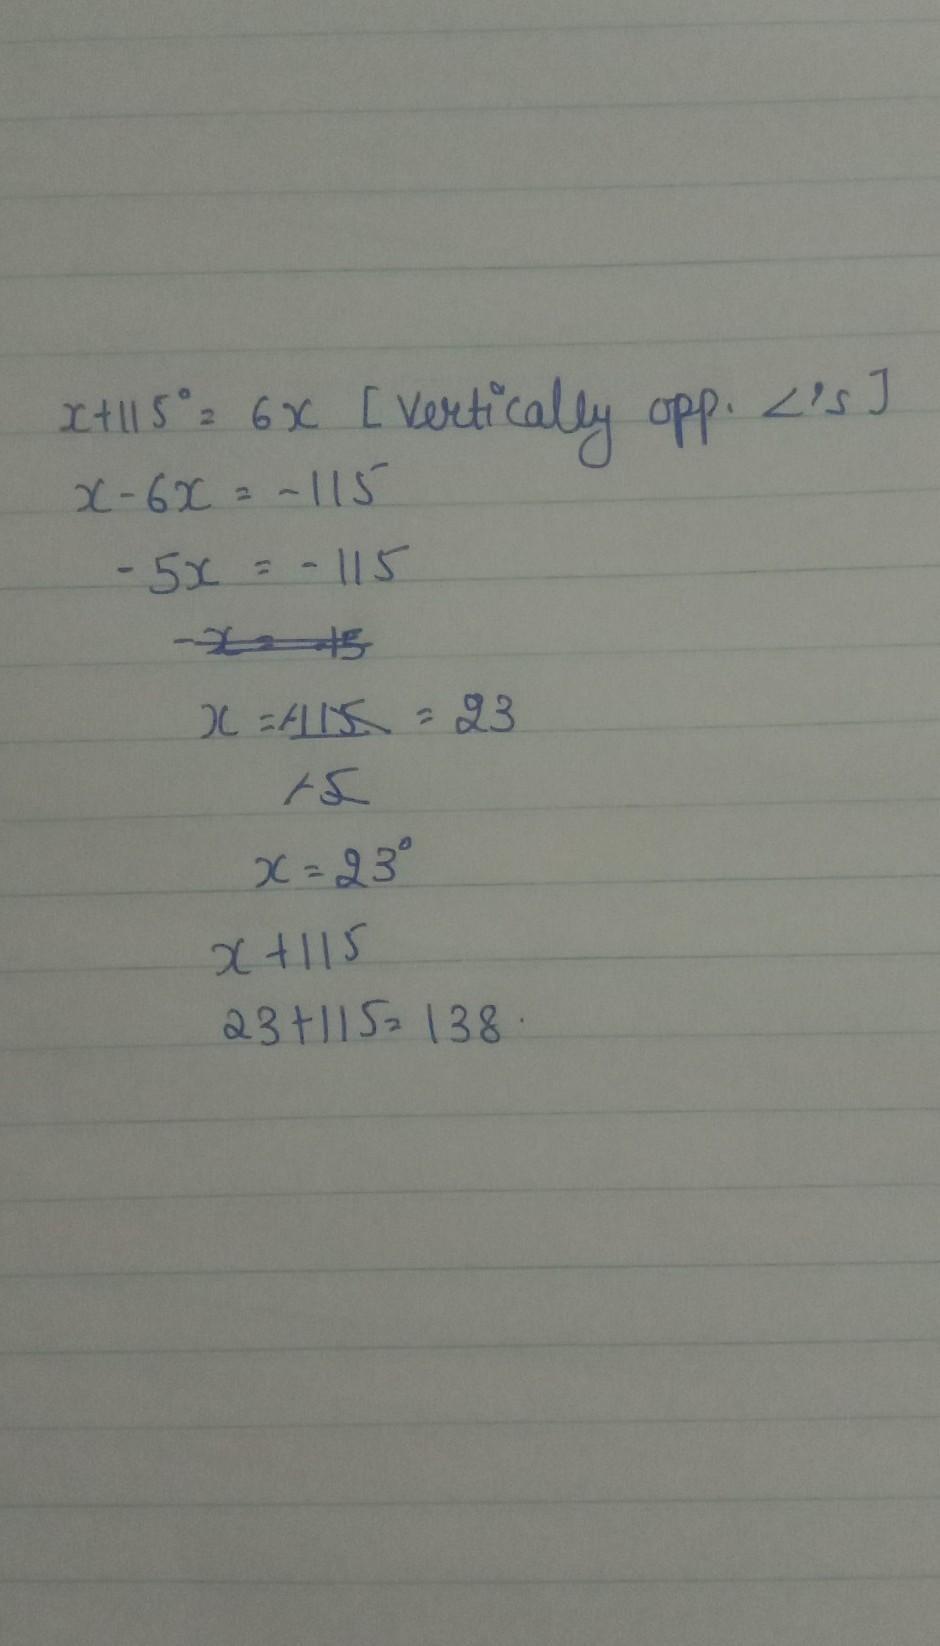 x+115°= 6x [Vertically opp. <'s]
x-6x = -115
-5x = -115
-x = -15
x = -115 = 23
-5
x = 23°
x+115
23+115= 138.